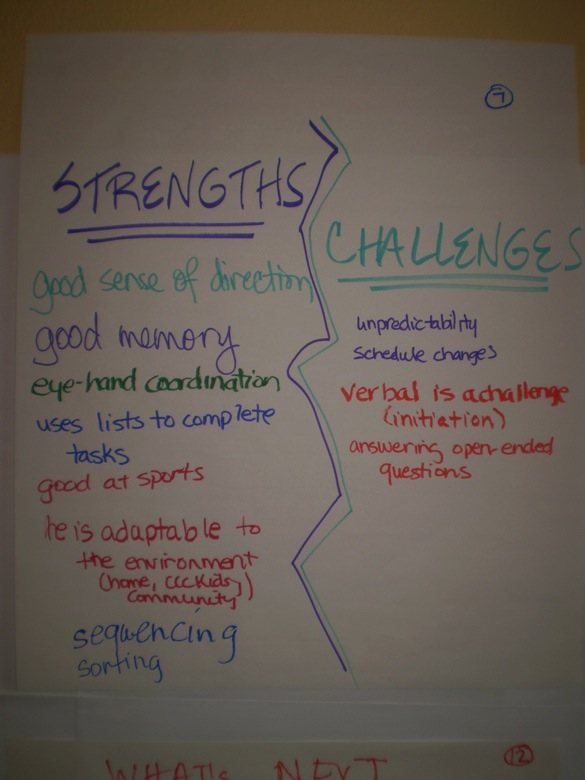 7
STRENGTHS
good sense of direction
good memory
eye-hand coordination
uses lists to complete
tasks
good at sports
he is adaptable to
the environment
(home, CCCKids,)
community
sequencing
sorting
CHALLENGES
unpredictability
schedule changes
verbal is a challenge
(initiation)
answering open-ended
questions
12
WHAT'S NEXT